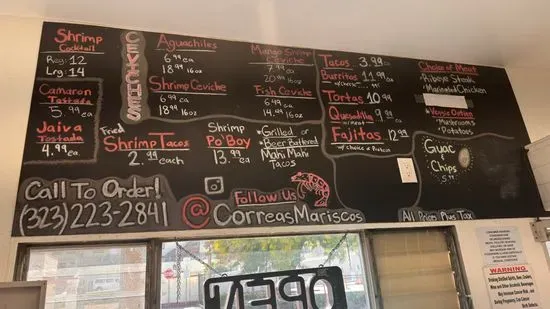 Shrimp
Cocktail
Reg: 12
Lrg: 14
Camaron
Tostada
5.99 ea
Jaiva
Tostada
4.99 ea.
CEVICHES
Aguachiles
6.99 ea
18.99 16oz
Shrimp Ceviche
6.99 ea
18.99 16oz
Mango Shrimp
Ceviche
7.99 ea
20.99 16oz
Fish Ceviche
6.99 ea
14.99 16oz
Fried
Shrimp Tacos
2.99 each
Shrimp
Po'Boy
13.99 ea
• Grilled or
• Beer Battered
Mahi Mahi
Tacos
Tacos 3.99 ea
Burritos 11.99 ea
Tortas 10.99
Quesadilla 9.99
w/ meat
Fajitas 12.99
w/ choice a Protein
Choice of Meat
• Ribeye Steak
• Marinated Chicken
• Veggie Option
• Mushrooms
• Potatoes
Guac
&
Chips
5.99
Call To Order!
(323)223-2841
Follow Us
@CorreasMariscos
All Prices Plus Tax
OPEN
WARNING